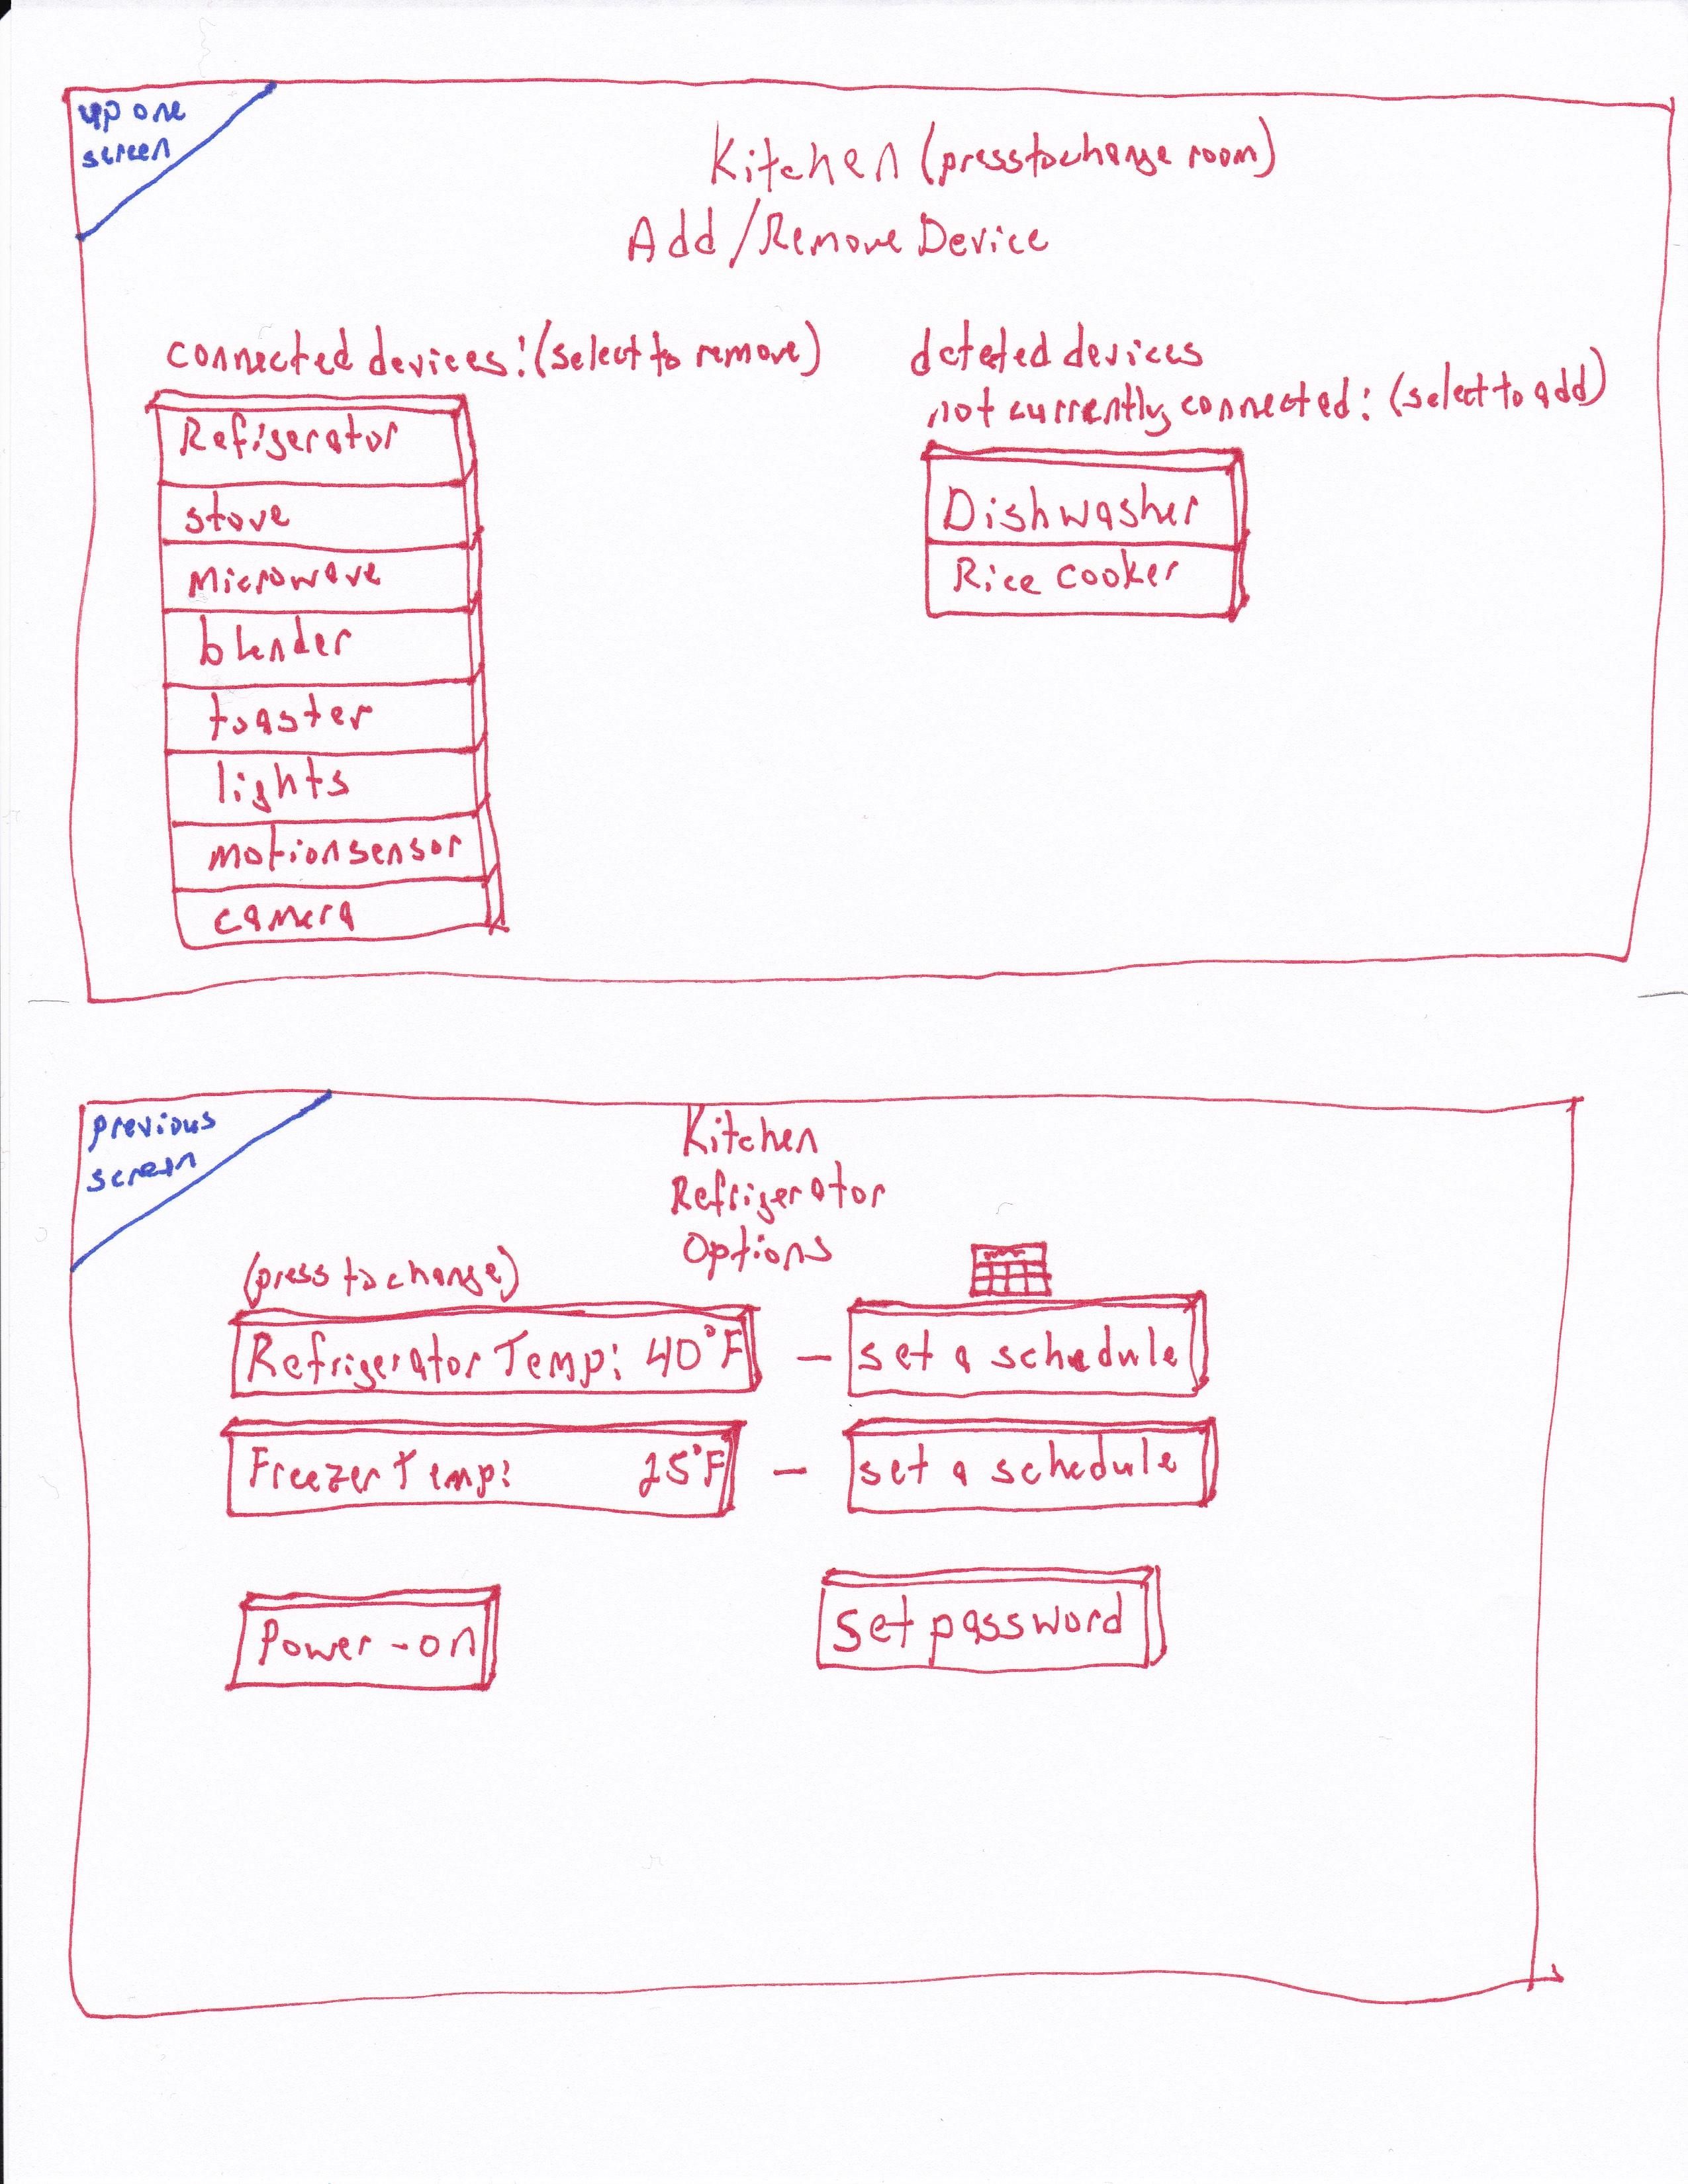 up one
screen
Kitchen (press to change room)
Add/Remove Device
connected devices: (select to remove)
Refrigerator
stove
Microwave
blender
toaster
lights
motion sensor
camera
deteted devices
not currently connected: (select to add)
Dishwasher
Rice cooker
previous
screen
Kitchen
Refrigerator
Options
(press to change)
Refrigerator Temp: 40°F - set a schedule
Freezer Temp: 25°F - set a schedule
Power-on
set password